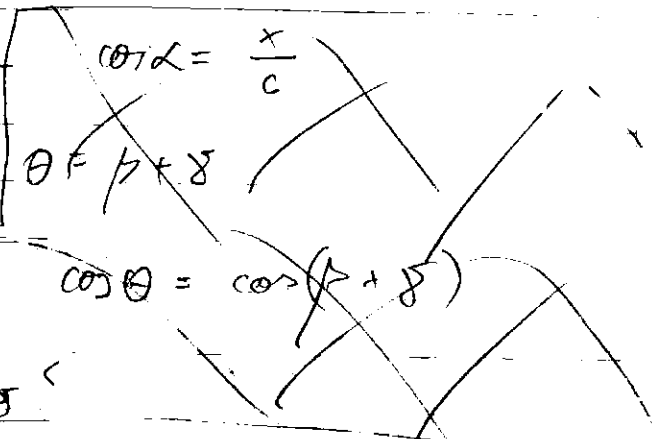 cos α = x/c
θ = β + γ
cos θ = cos(β + γ)